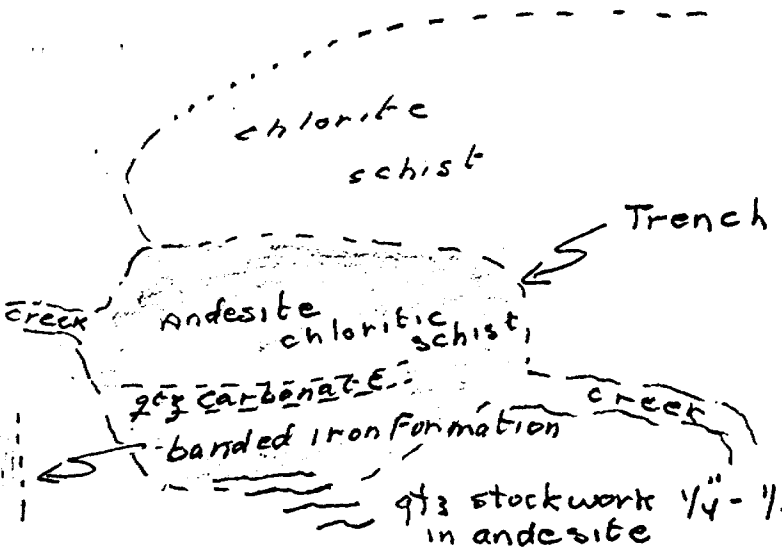 chlorite
schist
Trench
creek
Andesite
chloritic
schist
qtz carbonate
creek
banded iron Formation
qtz stockwork 1/4" -
in andesite